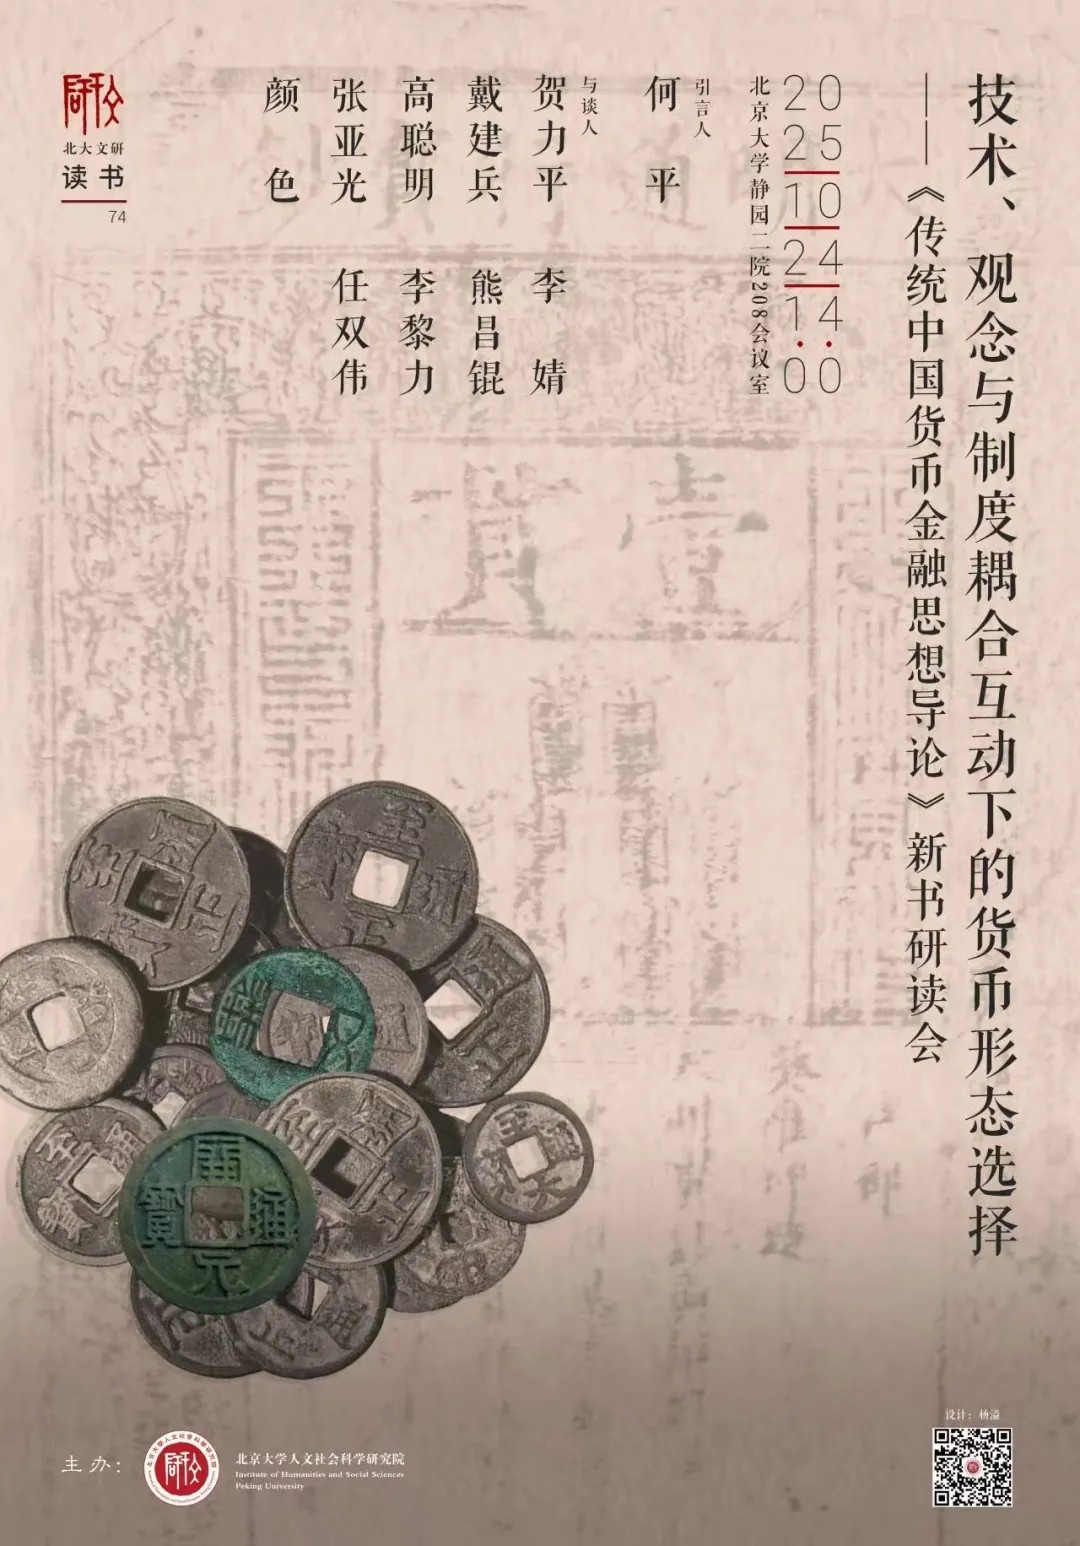 技术、观念与制度耦合互动下的货币形态选择
——《传统中国货币金融思想导论》新书研读会
20
25
10
24
14
:
00
北京大学静园二院208会议室
引言人
何平
与谈人
贺力平 李婧
戴建兵 熊昌锟
高聪明 李黎力
张亚光 任双伟
颜色
北大文研
读书
74
壹貫
至正通
開元通寳
设计：杨溢
主办：
北京大学人文社会科学研究院
Institute of Humanities and Social Sciences
Peking University